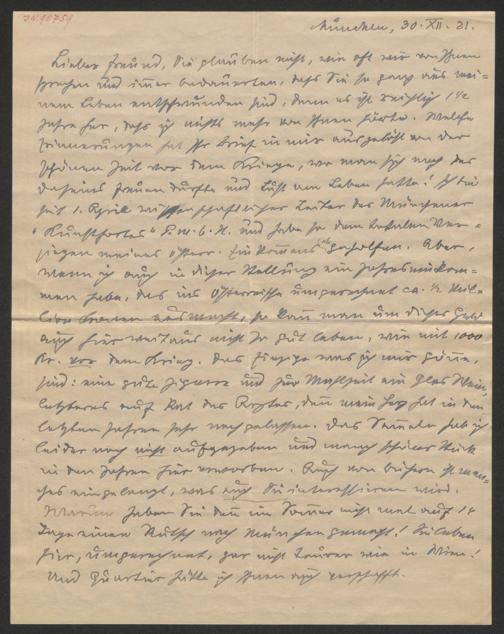 J.N. 90759
München, 30. XII. 21.
Lieber Freund, Sie glauben nicht, wie oft wir von Ihnen
sprachen und immer bedauerten, daß Sie so ganz aus mei-
nem Leben entschwunden sind, denn es ist reichlich 1½
Jahre her, daß ich nichts mehr von Ihnen hörte. Welche
Erinnerungen hat Ihr Brief in mir ausgelöst von der
schönen Zeit vor dem Kriege, wo man sich noch des
Daseins freuen durfte und Lust am Leben hatte! Ich bin
seit 1. April wissenschaftlicher Leiter des Münchener
"Kunsthortes" G.m.b.H. und habe so dem totalen Ver-
siegen meines österr. Einkommens abgeholfen. Aber,
wenn ich auch in dieser Stellung ein Jahreseinkom-
men habe, das ins Österreichische umgerechnet ca. ½ Mil-
lion Kronen ausmacht, so kann man um dieses Geld
auch hier weitaus nicht so gut leben, wie mit 1000
Kr. vor dem Krieg. Das Einzige was ich mir gönne,
sind: eine gute Zigarre und zur Mahlzeit ein Glas Wein,
letzteres auf Rat des Arztes, denn mein Herz hat in den
letzten Jahren sehr nachgelassen. Das Sammeln hab ich
leider noch nicht aufgegeben und manch schönes Stück
in den Jahren hier erworben. Auch von Büchern ist man-
ches eingelangt, was auch Sie interessieren wird.
Warum haben Sie denn im Sommer nicht mal auf 14
Tage einen Rutsch nach München gemacht! Sie leben
hier, umgerechnet, gar nicht teurer wie in Wien!
Und Quartier hätte ich Ihnen auch verschafft.